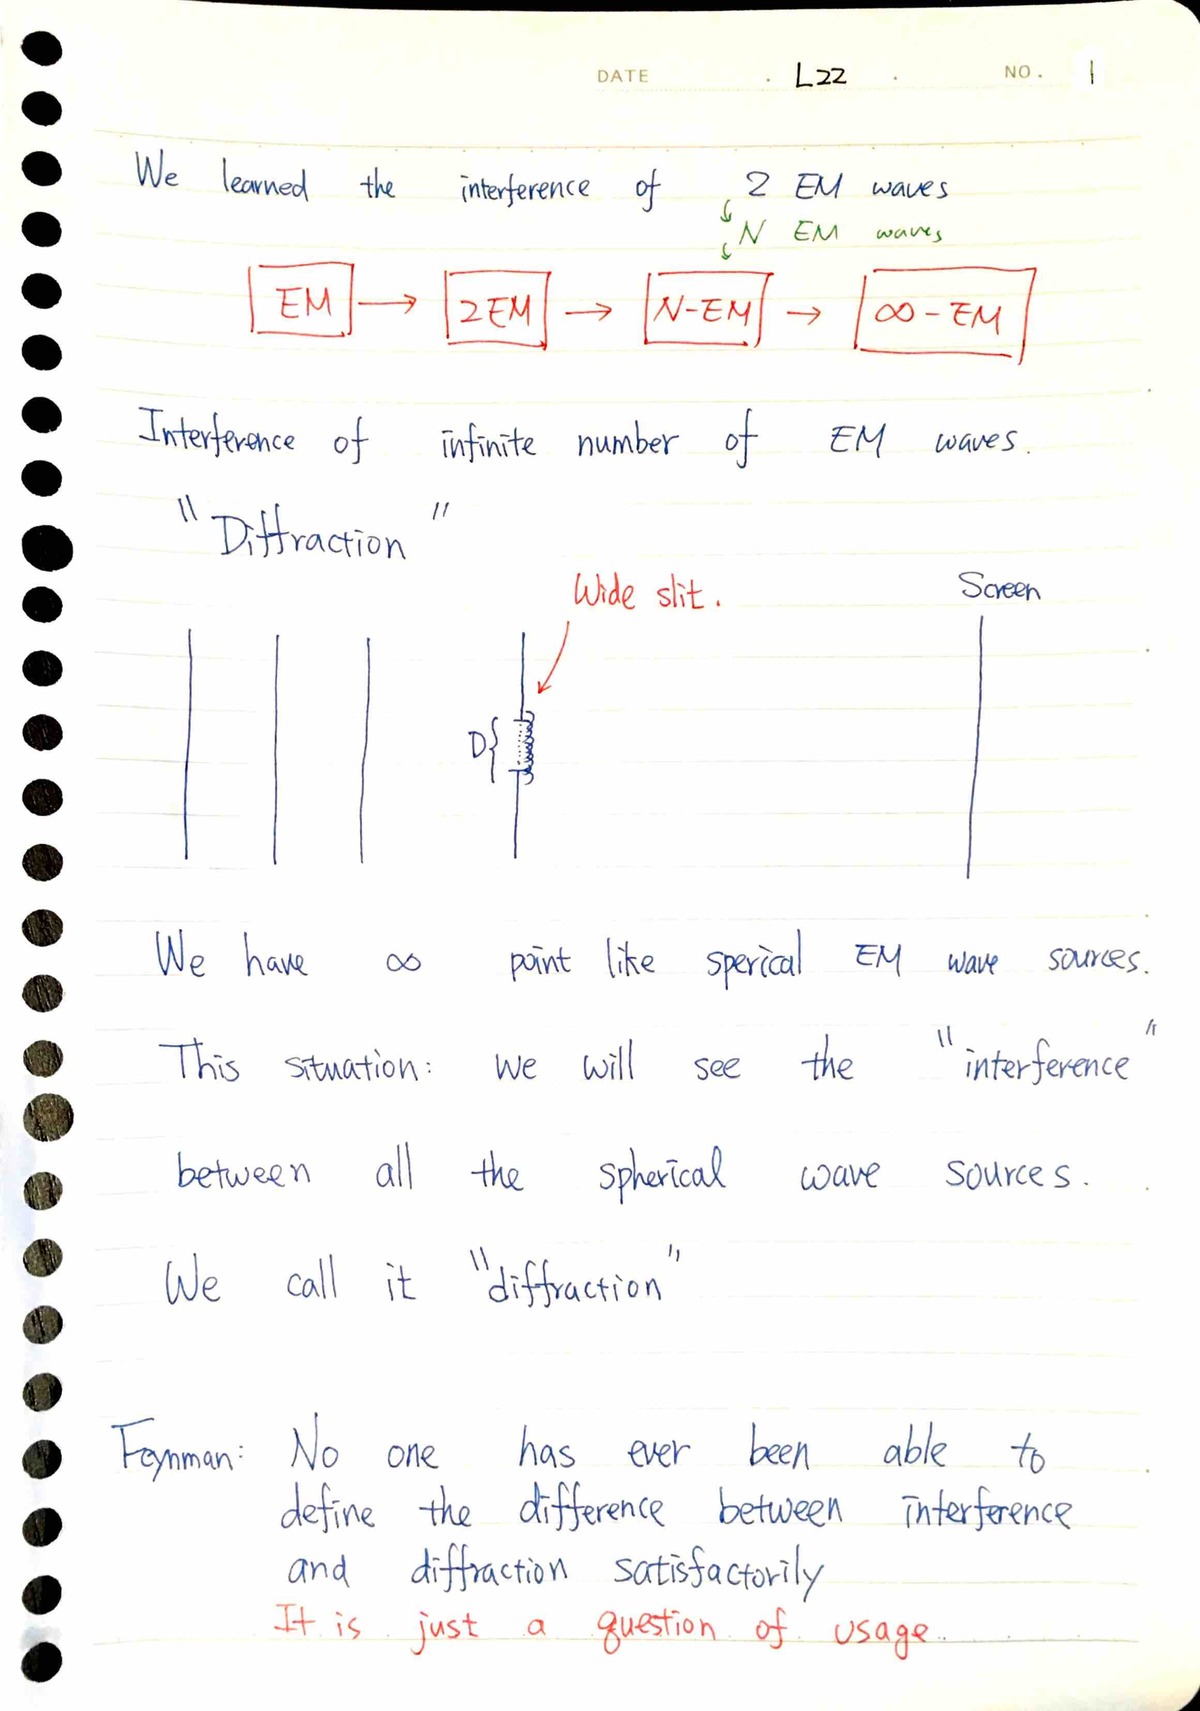 DATE . L22 . NO. 1
We learned the interference of 2 EM waves
N EM waves
EM → 2EM → N-EM → ∞-EM
Interference of infinite number of EM waves.
"Diffraction"
Wide slit. Screen
D{
We have ∞ point like sperical EM wave sources.
This situation: we will see the "interference"
between all the spherical wave sources.
We call it "diffraction"
Feynman: No one has ever been able to
define the difference between interference
and diffraction satisfactorily
It is just a question of usage.